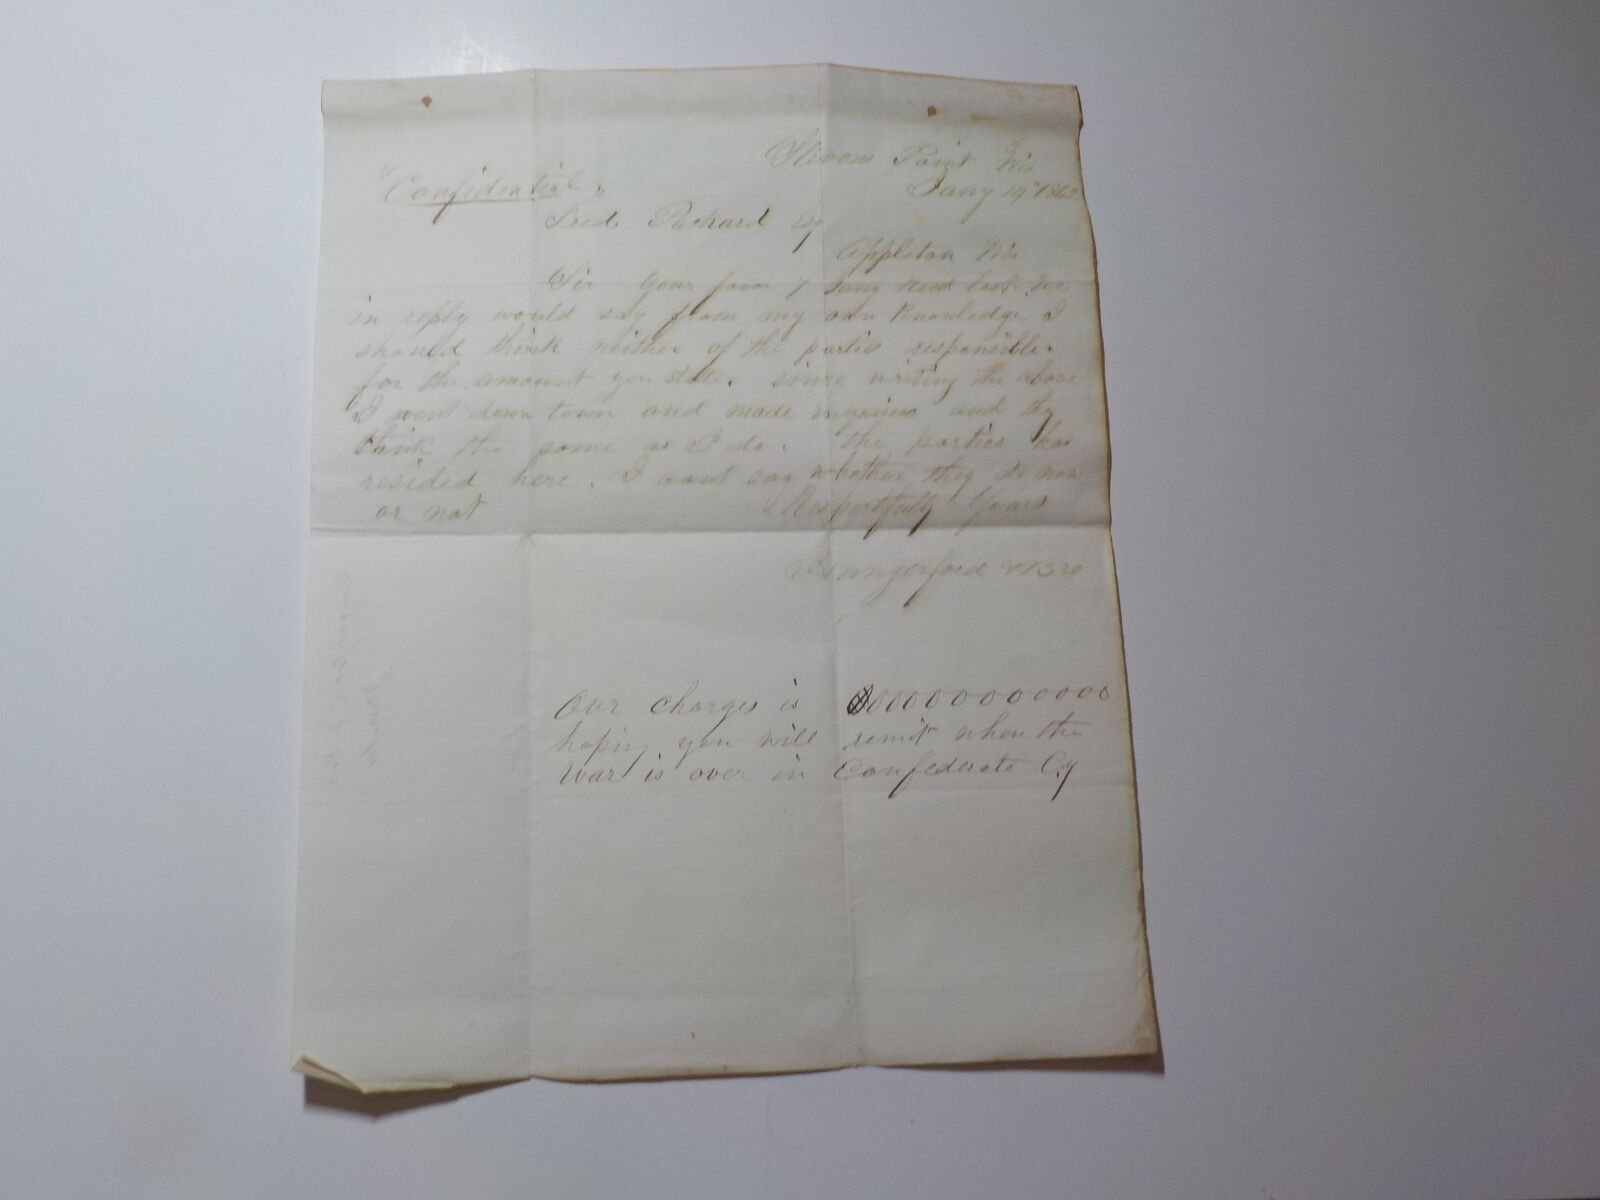 Stevens Point Wis
"Confidential" Jany 19th 1862
Fred Packard Esq
Appleton Wis
Sir Your favor 7 Jany Recd last Eve
in reply would say from my own Knowledge I
should think neither of the parties responsible
for the amount you state. since writing the above
I went down town and made inquiries and they
think the same as I do. the parties has
resided here. I cant say whether they do now
or not Respectfully Yours
Hungerford & Bro
Our charges is $000000000000
hoping you will remit when the
War is over in Confederate Cy